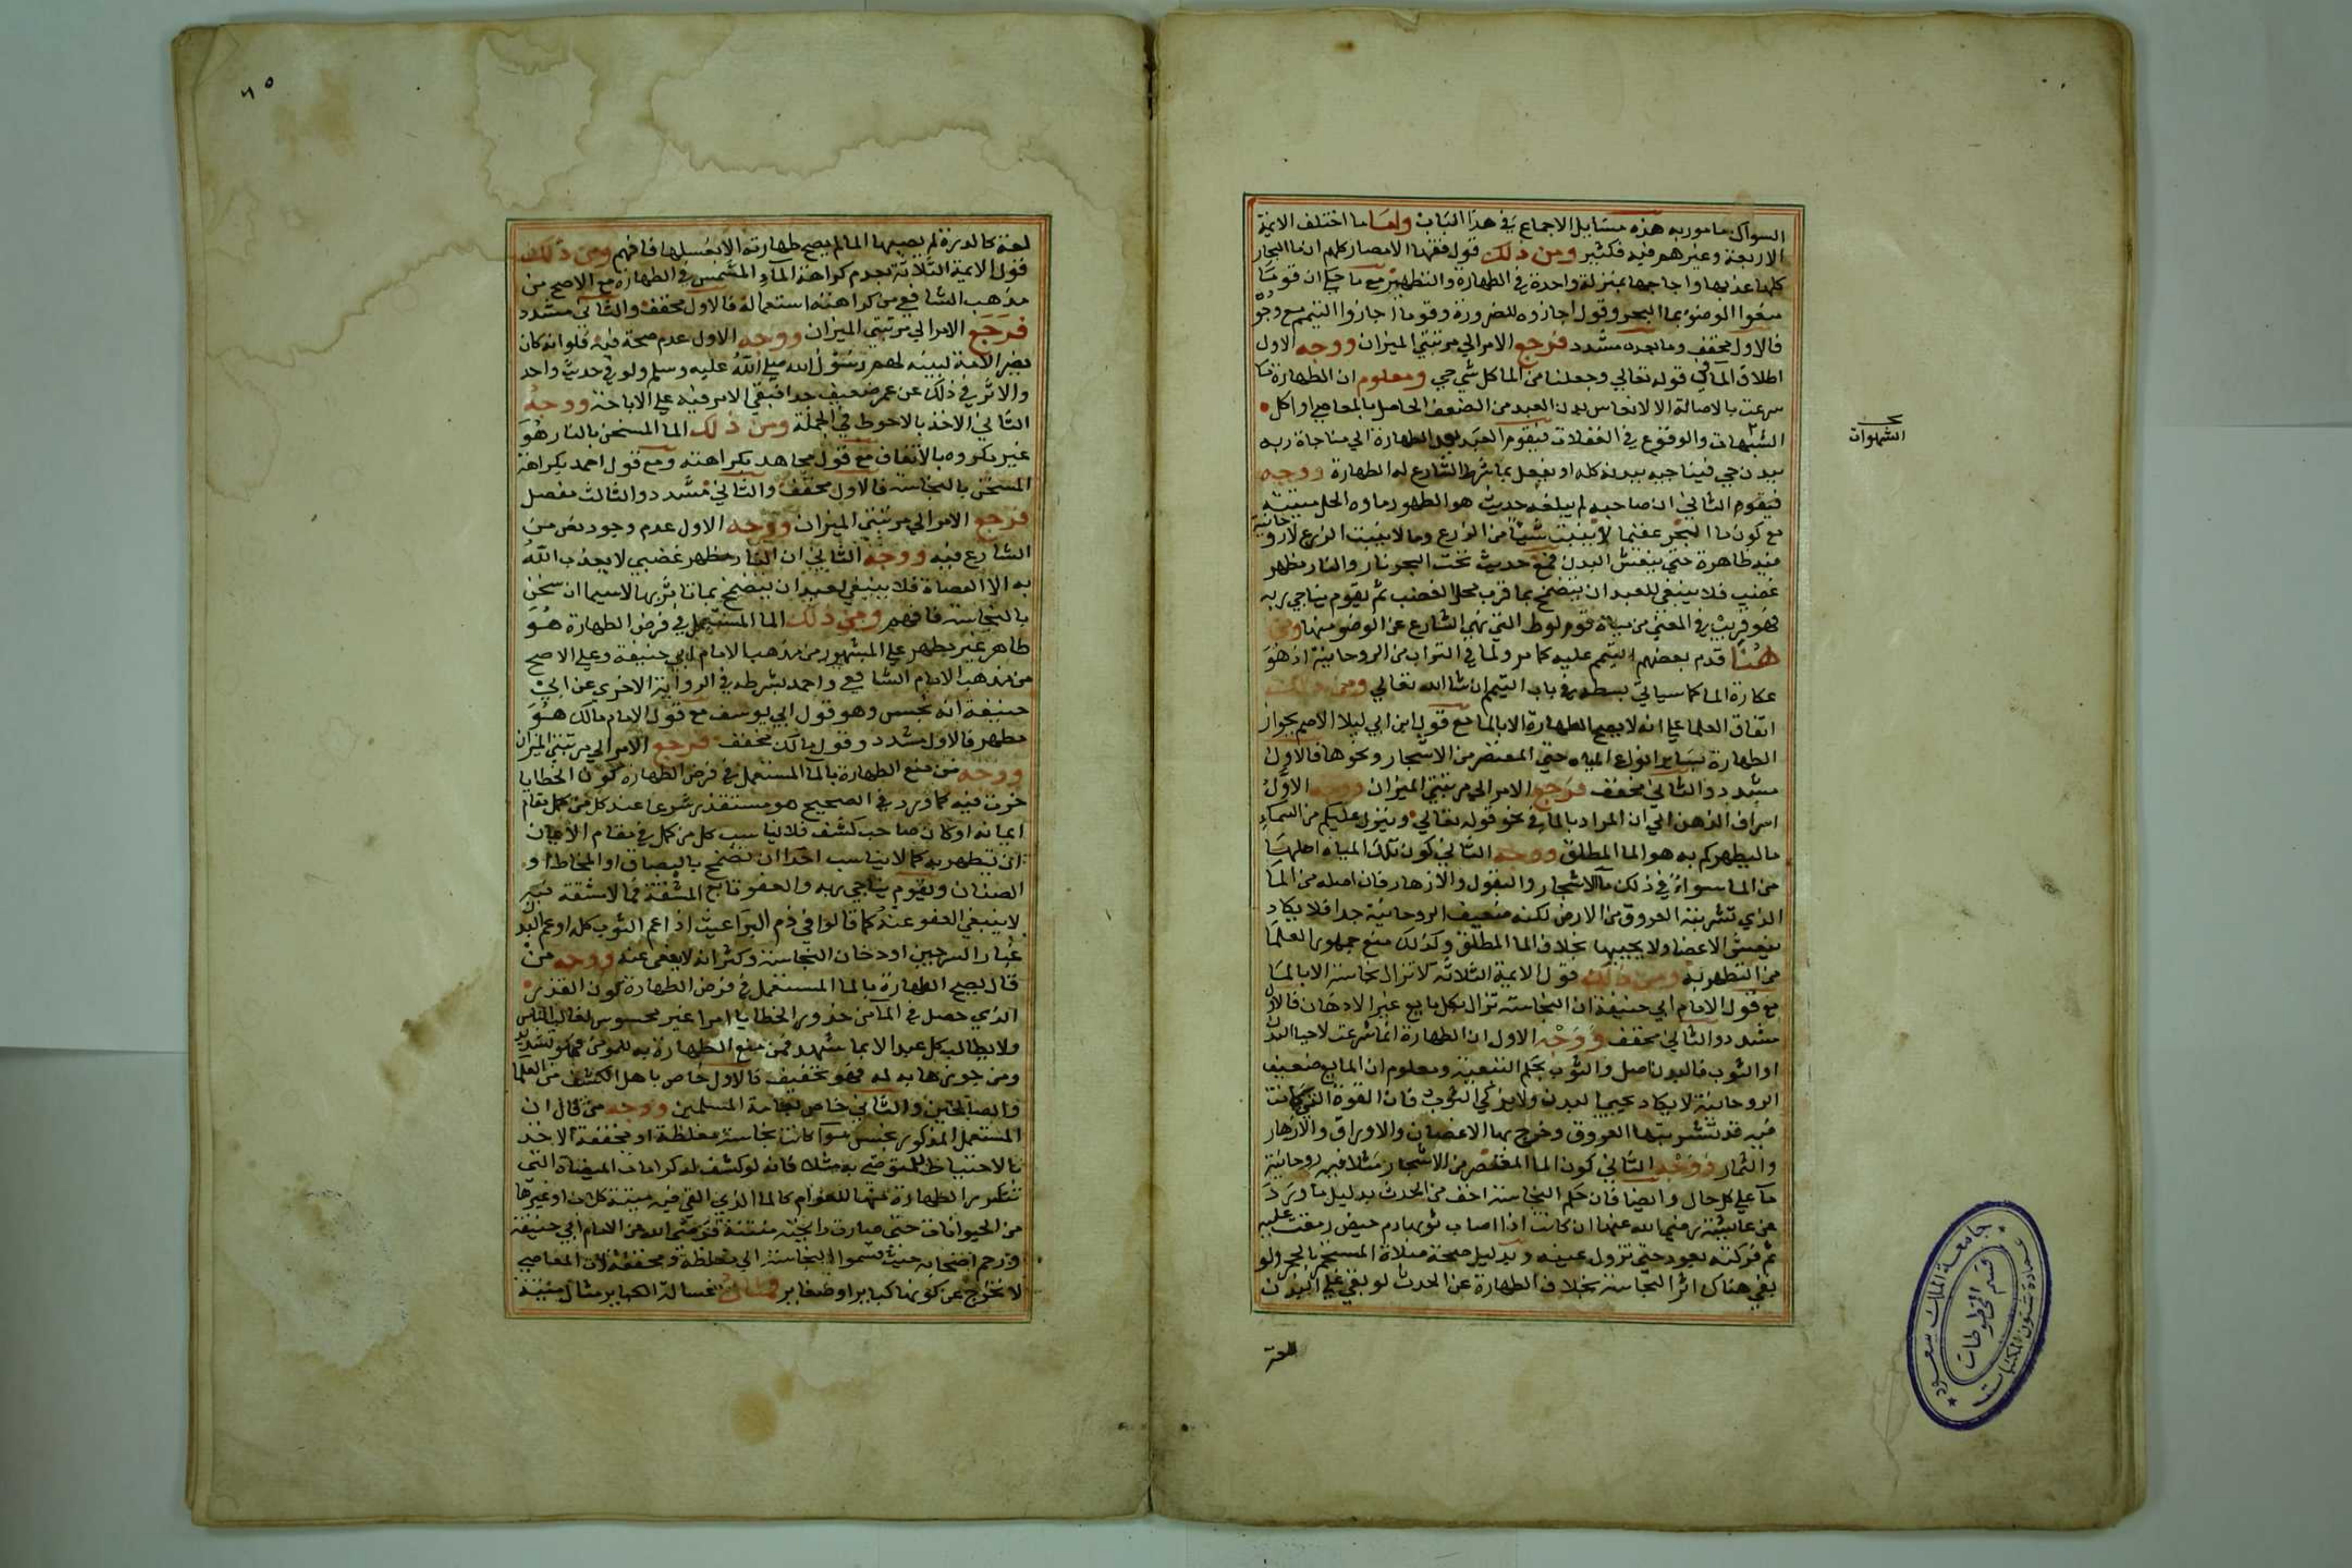 السواك مامور به هذه مسايل الاجماع في هذا الباب واما ما اختلف الايمة
الاربعة وغيرهم فيه فكثير ومن ذلك قول فقها الامصار كلهم ان ما البحار
كلها عذبها واجاجها بمنزلة واحدة في الطهارة والتطهير مع ما حكي ان قوما
منعوا الوضوء بما البحر وقوم اجازوه للضرورة وقوما اجازوا التيمم مع وجوده
فالاول مخفف وما بعده مشدد فرجع الامر الي مرتبتي الميزان ووجه الاول
اطلاق الما في قوله تعالي وجعلنا من الما كل شي حي ومعلوم ان الطهارة ما
شرعت بالاصالة الا لانعاش بدن العبد من الضعف الحاصل بالمعاصي او اكل
الشبهات والوقوع في الغفلات فيقوم العبد بعد الطهارة الي مناجاة ربه
ببدن حي فيناجيه ببدنه كله او يفعل بما شرط الشارع له الطهارة ووجه
فيقوم الثاني ان صاحبه لم يبلغه حديث هو الطهور ماوه الحل ميتته
مع كون ما البحر عقيما لا ينبت شيئا من الزرع وما لا ينبت الزرع لا روحانية
فيه ظاهرة حتي ينعش البدن فمع حديث تحت البحر نار والنار مظهر
غضبي فلا ينبغي للعبد ان يتضمخ بما قرب محل الغضب ثم يقوم يناجي ربه
فهو قريب في المعني من مياه قوم لوط التي نهي الشارع عن الوضو منها ومن
هنا قدم بعضهم التيمم عليه كما مر ولما في التراب من الروحانية اذ هو
عكارة الما كما سياتي بسطه في باب التيمم ان شا الله تعالي ومن ذلك
اتفاق العلما علي انه لا يصح الطهارة الا بالما مع قول ابن ابي ليلا الاصم بجواز
الطهارة بساير انواع المياه حتي المعتصر من الاشجار ونحوها فالاول
مشدد والثاني مخفف فرجع الامر الي مرتبتي الميزان ووجه الاول
انصراف الذهن الي ان المراد بالما في نحو قوله تعالي وينزل عليكم من السماء
ما ليطهركم به هو الما المطلق ووجه الثاني كون تلك المياه اصلها
من الما سواء في ذلك ما الاشجار والبقول والازهار فان اصله من الما
الذي تشربته العروق من الارض لكنه ضعيف الروحانية جدا فلا يكاد
ينعش الاعضا ولا يحييها بخلاف الما المطلق وكذلك منع جمهور العلما
من التطهر به ومن ذلك قول الايمة الثلاثه لا تزال نجاسة الا بالما
مع قول الامام ابي حنيفة ان النجاسة تزال بكل مايع غير الادهان فالاول
مشدد والثاني مخفف ووجه الاول ان الطهارة انما شرعت لاحيا البدن
او الثوب فالبدن اصل والثوب بحكم التبعية ومعلوم ان المايع ضعيف
الروحانية لا يكاد يحيي البدن ولا يزكي الثوب فان القوة التي كانت
فيه قد تشربتها العروق وخرج بها الاغصان والاوراق والازهار
والثمار ووجه الثاني كون الما المعتصر من الاشجار مثلا فيه روحانية
ما علي كل حال وايضا فان حكم النجاسة اخف من الحدث بدليل ما ورد
عن عايشة رضي الله عنها ان كانت اذا اصاب ثوبها دم حيض بصقت عليه
ثم فركته بعود حتي تزول عينه وبدليل صحة صلاة المستجمر بالحجر ولو
بقي هناك اثر النجاسة بخلاف الطهارة عن الحدث لو بقي علي البدن
الشهوات
لمعة
٦٥
لمعة كالدرة لم يصبها الما لم يصح طهارته الا بغسلها فافهم ومن ذلك
قول الايمة الثلاثة بعدم كراهة الماء المشمس في الطهارة مع الاصح من
مذهب الشافعي من كراهته استعماله فالاول مخفف والثاني مشدد
فرجع الامر الي مرتبتي الميزان ووجه الاول عدم صحة فيه فلو انه كان
يضر الامة لبينه لهم رسول الله صلي الله عليه وسلم ولو في حديث واحد
والاثر في ذلك عن عمر ضعيف جدا فبقي الامر فيه علي الاباحة ووجه
الثاني الاخذ بالاحوط في الجملة ومن ذلك الما المسخن بالنار هو
غير مكروه بالاتفاق مع قول مجاهد بكراهته ومع قول احمد بكراهة
المسخن بالنجاسة فالاول مخفف والثاني مشدد والثالث مفصل
فرجع الامر الي مرتبتي الميزان ووجه الاول عدم وجود نص من
الشارع فيه ووجه الثاني ان النار مظهر غضبي لا يعذب الله
به الا العصاة فلا ينبغي لعبد ان يتضمخ بما تاثر بها لا سيما ان سخن
بالنجاسة فافهم ومن ذلك الما المستعمل في فرض الطهارة هو
طاهر غير مطهر علي المشهور من مذهب الامام ابي حنيفة وعلي الاصح
من مذهب الامام الشافعي واحمد بشرطه في الرواية الاخري عن ابي
حنيفة انه نجس وهو قول ابي يوسف مع قول الامام مالك هو
مطهر فالاول مشدد وقول مالك مخفف فرجع الامر الي مرتبتي الميزان
ووجه من منع الطهارة بالما المستعمل في فرض الطهارة كون الخطايا
خرت فيه كما ورد في الصحيح هو مستقذر شرعا عند كل من كمل مقام
ايمانه او كان صاحب كشف فلا يناسب كل من كمل في مقام الايمان
ان يتطهر به كما لا يناسب احدا ان تضمخ بالبصاق او المخاط او
الصنان ويقوم يناجي ربه والعفو تابع المشقة فما لا مشقة فيه
لا ينبغي العفو عنه كما قالوا في دم البراغيث اذا عم الثوب كله او عم البدن
غبار السرجين او دخان النجاسة وكثر انه لا يعفي عنه ووجه من
قال يصح الطهارة بالما المستعمل في فرض الطهارة كون القذر
الذي حصل في الما من خرور الخطايا امرا غير محسوس لغالب الناس
ولا يطالب كل عبد الا بما شهد فمن منع الطهارة به للمومن فهو تشديد
ومن جوزها به له فهو تخفيف فالاول خاص باهل الكشف من العلما
والصالحين والثاني خاص بعامة المسلمين ووجه من قال ان
المستعمل المذكور نجس سوا كانت نجاسة مغلظة او مخففة الاخذ
بالاحتياط للمتوضي به مثلا فانه لو كشف له لراي ما في الميضاة التي
تتكرر الطهارة منها للعوام كالما الذي القي فيه ميتة كلاب او غيرها
من الحيوانات حتي صارت رايحته منتنة فرضي الله عن الامام ابي حنيفة
ورحم اصحابه حيث قسموا النجاسة الي مغلظة ومخففة لان المعاصي
لا تخرج عن كونها كباير او صغاير فمثال غسالة الكباير مثال ميتة
جامعة الملك سعود
عمادة شئون المكتبات
قسم المخطوطات